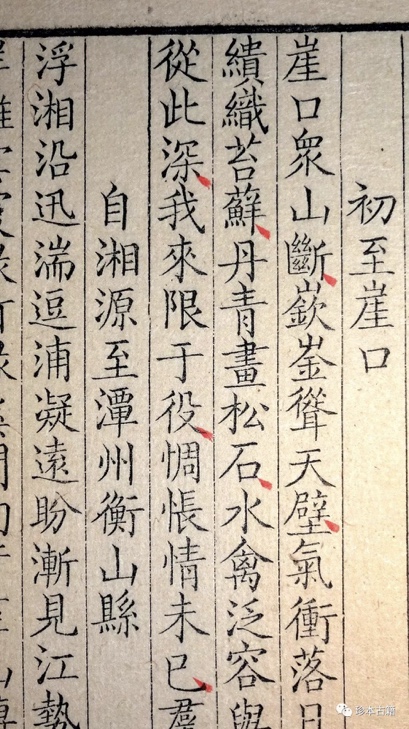 初至崖口
崖口眾山斷嶔崟聳天壁氣衝落日
繢織苔蘚丹青畫松石水禽泛容與
從此深我來限于役惆悵情未已羣
自湘源至潭州衡山縣
浮湘沿迅湍逗浦凝遠盼漸見江勢
珍本古籍